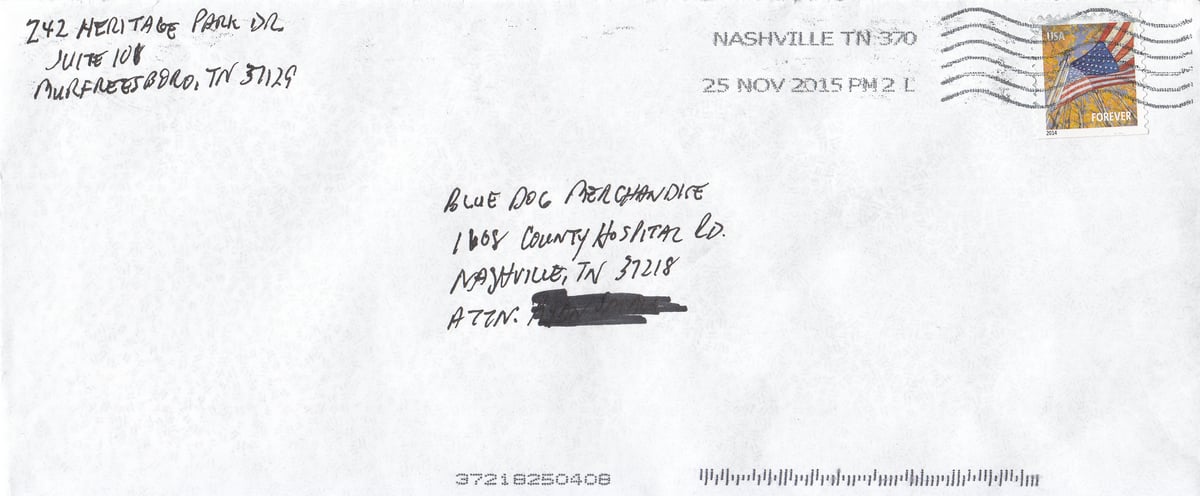 242 HERITAGE PARK DR
SUITE 108
MURFREESBORO, TN 37129
NASHVILLE TN 370
25 NOV 2015 PM 2 L
USA
FOREVER
2014
BLUE DOG MERCHANDISE
1608 COUNTY HOSPITAL RD.
NASHVILLE, TN 37218
ATTN:
37218250408